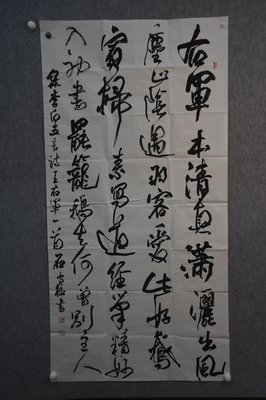 右軍本清真瀟灑出風
塵山陰過羽客愛此好鵝
賓掃素寫道經筆精妙
入神書罷籠鵝去何曾別主人
錄李白五言詩王右軍一首石